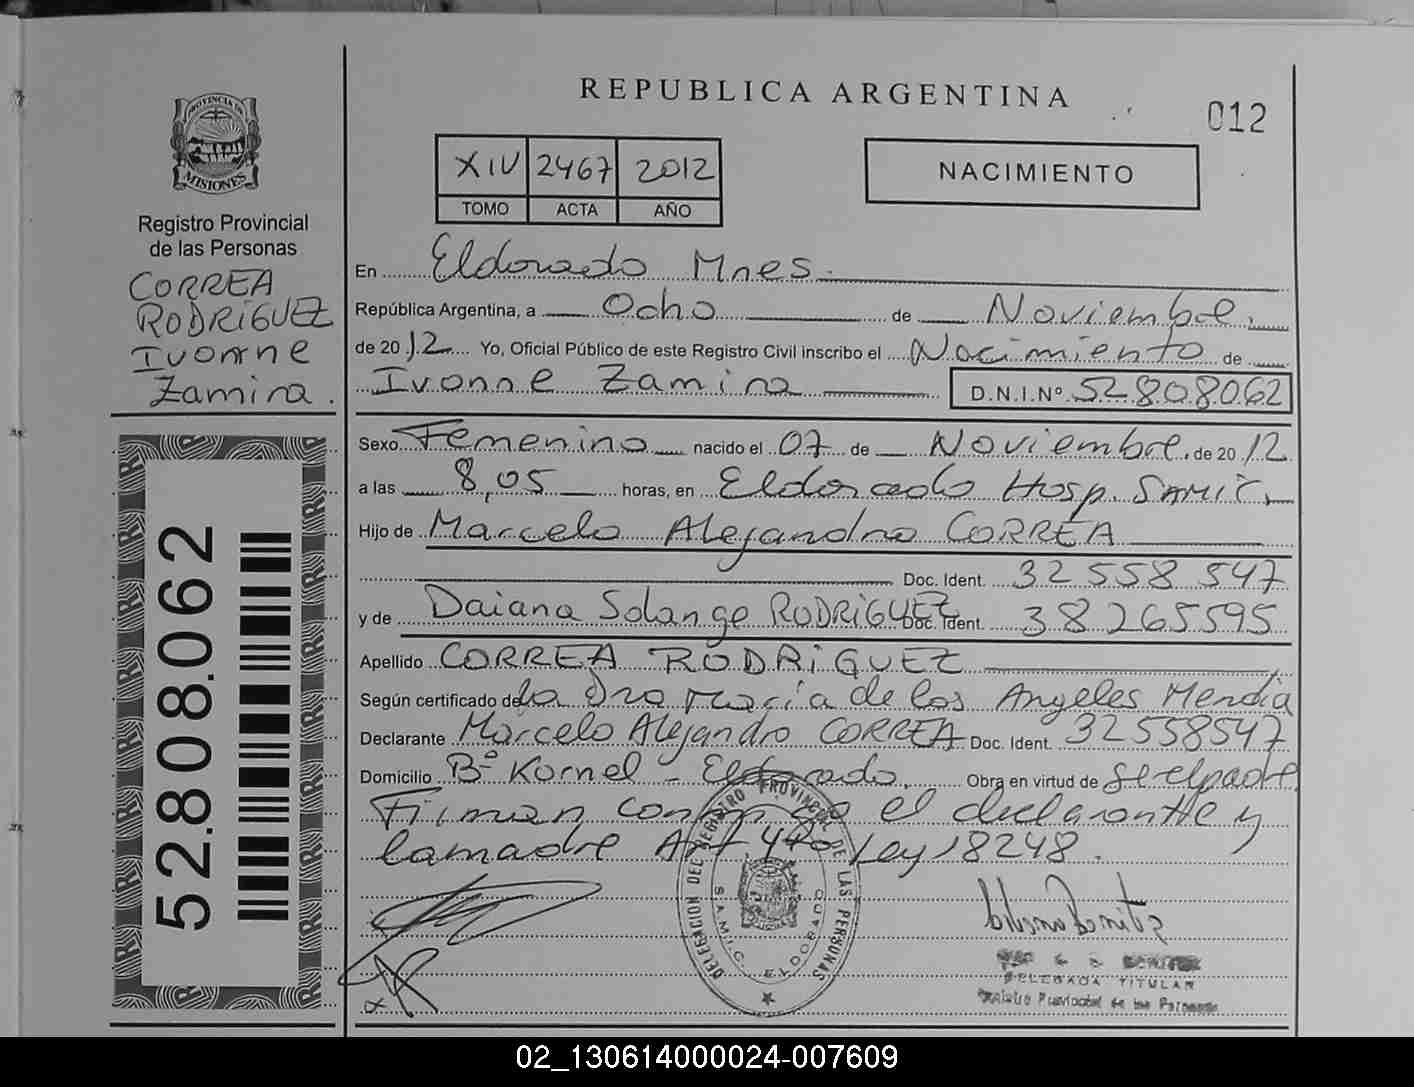 REPUBLICA ARGENTINA
012
PROVINCIA DE
MISIONES
Registro Provincial
de las Personas
CORREA
RODRIGUEZ
Ivonne
Zamira.
52.808.062
XIV 2467 2012
TOMO ACTA AÑO
NACIMIENTO
En Eldorado Mnes.
República Argentina, a Ocho de Noviembre.
de 2012 Yo, Oficial Público de este Registro Civil inscribo el Nacimiento de
Ivonne Zamira D.N.I.Nº 52.808.062
Sexo Femenino nacido el 07 de Noviembre. de 2012
a las 8,05 horas, en Eldorado Hosp. SAMIC.
Hijo de Marcelo Alejandro CORREA
Doc. Ident. 32 558 547
y de Daiana Solange RODRIGUEZ Doc. Ident. 38 265595
Apellido CORREA RODRIGUEZ
Según certificado de la Dra María de los Angeles Mendia
Declarante Marcelo Alejandro CORREA Doc. Ident. 32558547
Domicilio Bº Kornel - Eldorado. Obra en virtud de ser el padre.
Firman conmigo el declarante y
la madre Art 4to Ley 18248.
DELEGACION DEL REGISTRO PROVINCIAL DE LAS PERSONAS
S.A.M.I.C. ELDORADO
DELEGADA TITULAR
Registro Provincial de las Personas
02_130614000024-007609